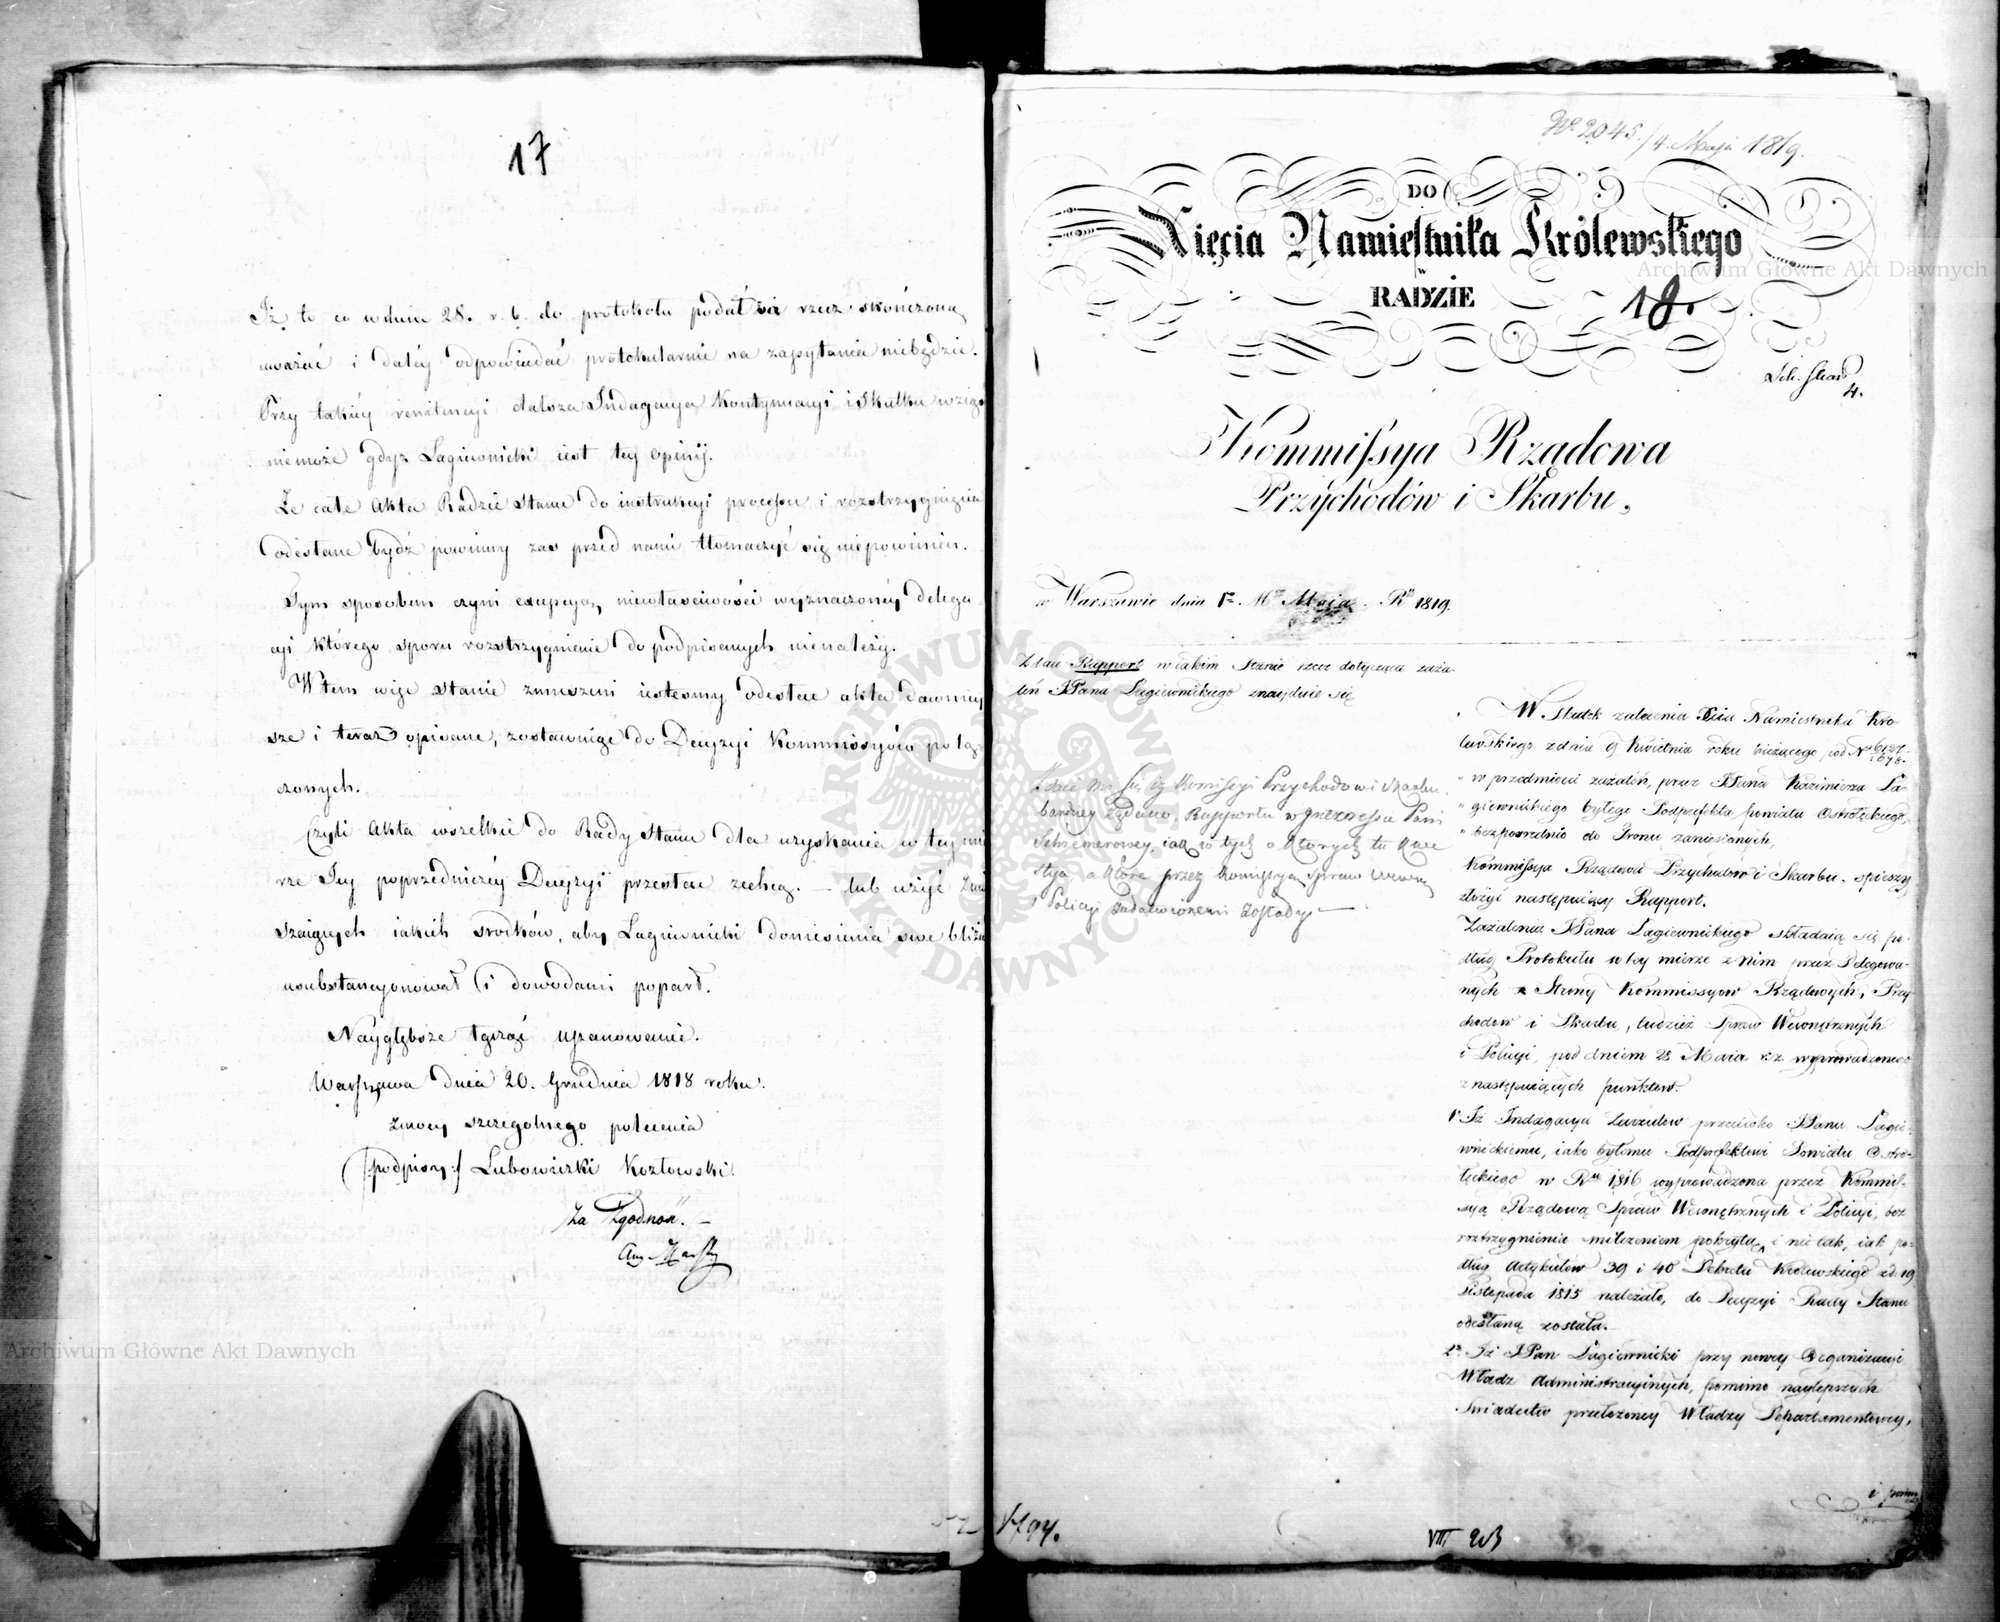 17
Iż to co w dniu 28. r. b. do protokołu podał za rzecz skończoną
uważać i daléy odpowiadać protokularnie na zapytania niebędzie.
Przy takiéy renitencyi dalsza Indagacya kontynuacyi i skutku wziąść
niemoże gdyż Łagiewnicki iest tey opinij.
Że całe Akta Radzie Stanu do instrukcyi processu i rozstrzygnięcia
odesłane bydź powinny zas przed nami tłomaczyć się niepowinien.
Tym sposobem czyni excepcyą niewłasciwości wyznaczonéy Delega-
cyi którego sporu rozstrzygnienie do podpisanych nienależy.
W tem więc stanie zmuszeni iestesmy odesłac akta dawniey
sze i teraz opisane, zostawuiąc do Decyzyi Kommissyów połą-
czonych.
Czyli Akta wszelkie do Rady Stanu dla uzyskania w tey mie
rze Jey poprzedniczéy Decyzyi przesłac zechcą. — lub użyć
iakich srodków, aby Łagiewnicki doniesienia swe bliżéy
usubstancyonował i dowodami poparł.
Naygłębsze łączą uszanowanie.
Warszawa Dnia 20. Grudnia 1818 roku.
Zmocy szczegolnego polecenia
(podpisy:) Lubowidzki Kozłowski.
Za Zgodność. —
Nº 2045./4. Maja 1819.
DO
Xięcia Namiestnika Królewskiego
RADZIE
18.
4.
Kommissya Rządowa
Przychodów i Skarbu,
w Warszawie dnia 1º. Mca Maja. Rº 1819.
Zdaie Rapport w iakim stanie rzecz dotycząca zaża-
leń JPana Łagiewnickiego znayduie się
Zdaie mi się, iż Komissyi Przychodow i Skarbu
bardziey żądano Rapportu w Interessie Pani
Schremerowey, iak w tych o których tu
a które przez Komissyą Spraw Wewn.
i Policyi zadatwionemi zostały. —
W skutek zalecenia Xcia Namiestnika Kró-
lewskiego z dnia 9 Kwietnia roku bieżącego pod Nº
" w przedmiocie zażaleń, przez JPana Kazimierza Ła-
" giewnickiego byłego Podprefekta powiatu Ostrołęckiego,
" bezpośrednio do Tronu zaniesionych,
Kommissya Rządowa Przychodów i Skarbu, spieszy
złożyć następuiący Rapport.
Zażalenia JPana Łagiewnickiego składaią się po-
dług Protokułu w tey mierze z Nim przez Delegowa-
nych z Strony Kommissyow Rządowych, Przy-
chodow i Skarbu, tudzież Spraw Wewnętrznych
i Policyi, pod dniem 28 Maia r.z. wyprowadzonego
z następuiących punktow.
1º Iż Indagacya Zarzutow przeciwko JPanu Łagie-
wnickiemu, iako byłemu Podprefektowi Powiatu Ostro-
łęckiego w Rº 1816 wyprowadzona przez Kommis-
syą Rządową Spraw Wewnętrznych i Policyi, bez
roztrzygnienia milczeniem pokryta, i nie tak, iak po-
dług Artykułow 39 i 40 Dekretu Królewskiego z d. 19
Listopada 1815 należało, do Decyzyi Rady Stanu
odesłaną została.
2º Iż JPan Łagiewnicki przy nowey Organizacyi
Władz Administracyinych, pomimo naylepszych
Swiadectw przełożoney Władzy Departamentowey,
i pomi
VIII 203
Archiwum Główne Akt Dawnych
Archiwum Główne Akt Dawnych
ARCHIWUM GŁÓWNE AKT DAWNYCH